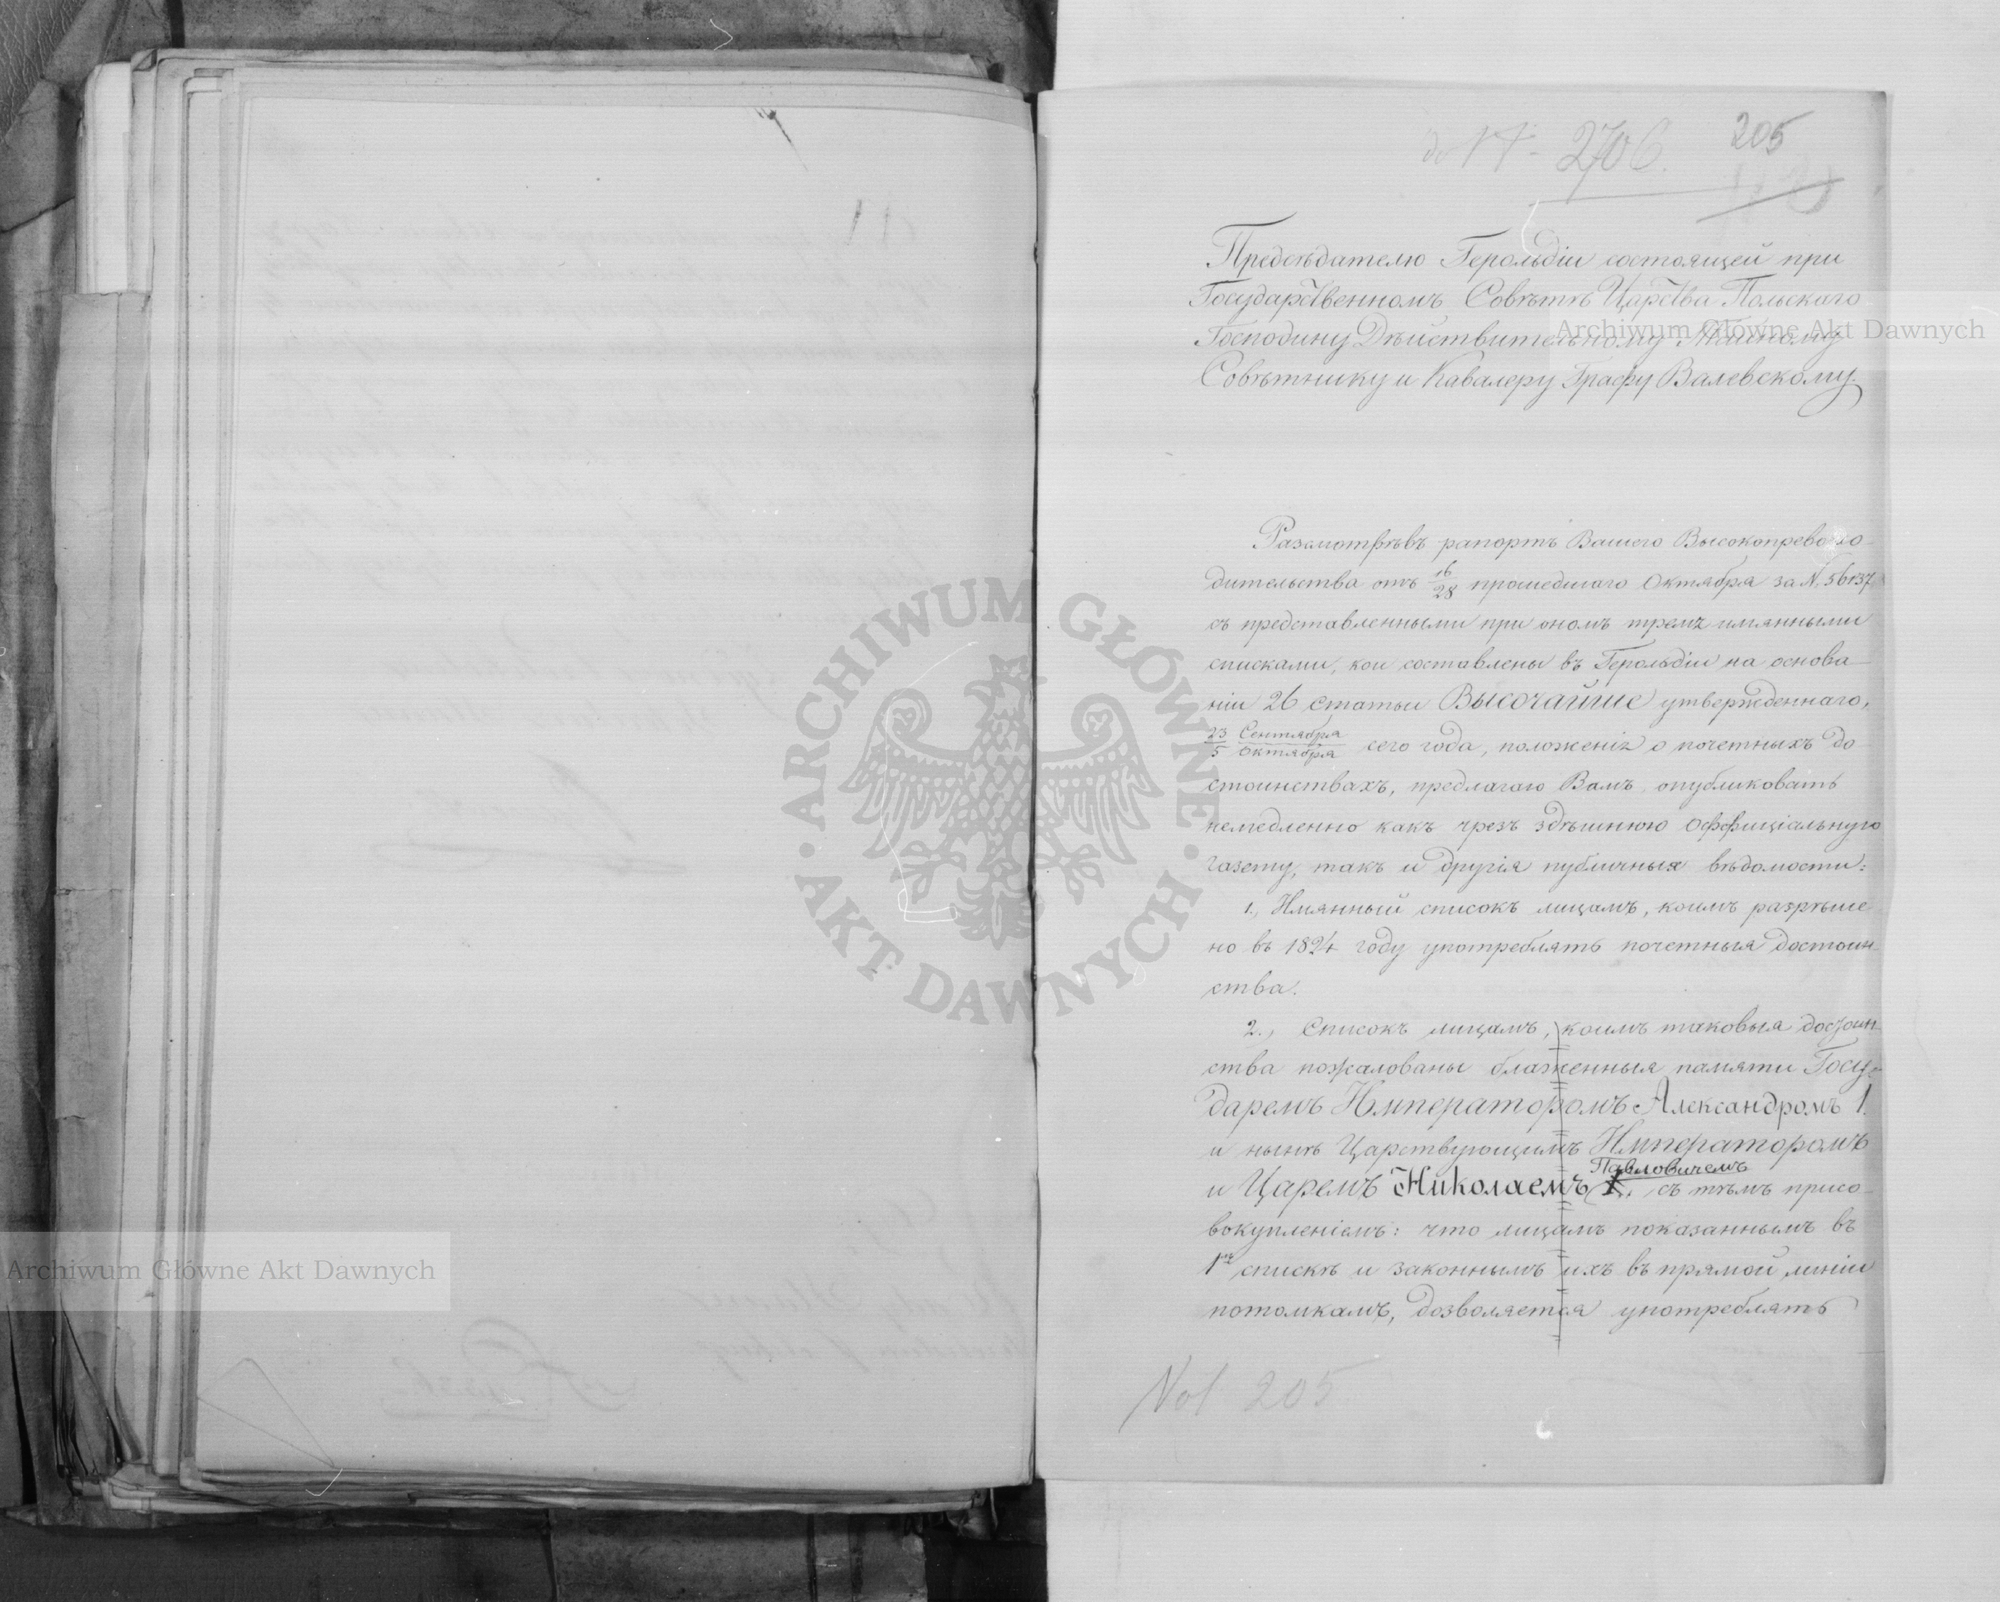 до N. 2706. 205
Предсѣдателю Герольдіи состоящей при
Государственномъ Совѣтѣ Царства Польскаго
Господину Дѣйствительному Тайному
Совѣтнику и Кавалеру Графу Валевскому.
Разсмотрѣвъ рапортъ Вашего Высокопревосхо-
дительства отъ 16/28 прошедшаго Октября за N. 56137
съ представленными при ономъ тремя имянными
списками, кои составлены въ Герольдіи на основа-
ніи 26 статьи Высочайше утвержденнаго,
23 Сентября / 5 Октября сего года, положенія о почетныхъ до-
стоинствахъ, предлагаю Вамъ опубликовать
немедленно какъ чрезъ здѣшнюю Оффиціальную
газету, такъ и другія публичныя вѣдомости:
1., Имянный списокъ лицамъ, коимъ разрѣше-
но въ 1824 году употреблять почетныя достоин-
ства.
2., Списокъ лицамъ, коимъ таковыя достоин-
ства пожалованы блаженныя памяти Госу-
даремъ Императоромъ Александромъ I.
и нынѣ Царствующимъ Императоромъ
Павловичемъ
и Царемъ Николаемъ I., съ тѣмъ присо-
вокупленіемъ: что лицамъ показаннымъ въ
1мъ спискѣ и законнымъ ихъ въ прямой линіи
потомкамъ, дозволяется употреблять
Vol 205
Archiwum Główne Akt Dawnych
Archiwum Główne Akt Dawnych
ARCHIWUM GŁÓWNE · AKT DAWNYCH ·